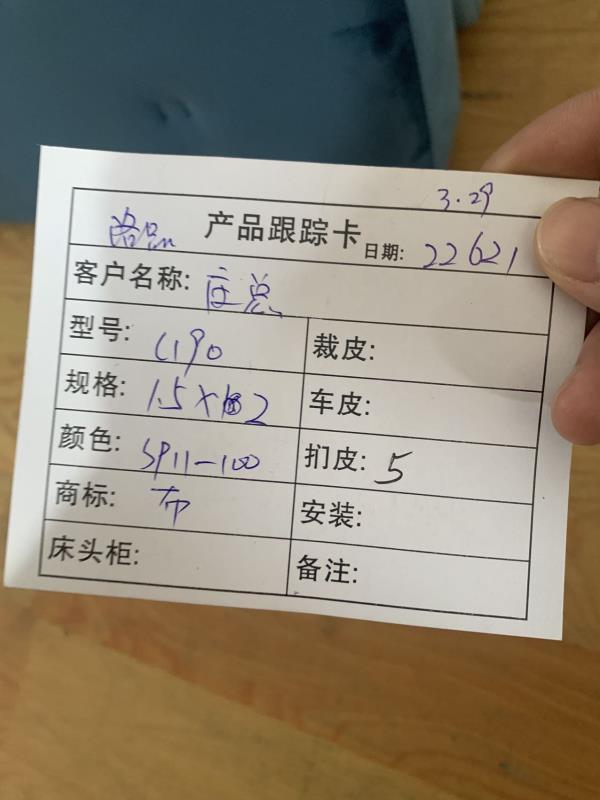 3.29
产品跟踪卡 日期: 22621
客户名称: 庄总
型号: C190
裁皮:
规格: 1.5×2
车皮:
颜色: SP11-100
扪皮: 5
商标: 布
安装:
床头柜:
备注: